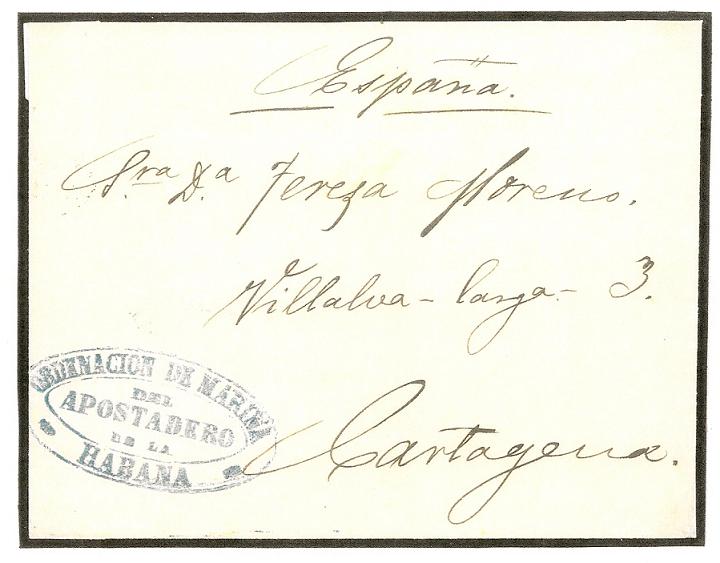 España.
Sra D.a Teresa Moreno.
Villalva - larga - 3.
Cartagena.
ORDENACION DE MARINA
DEL
APOSTADERO
DE LA
HABANA